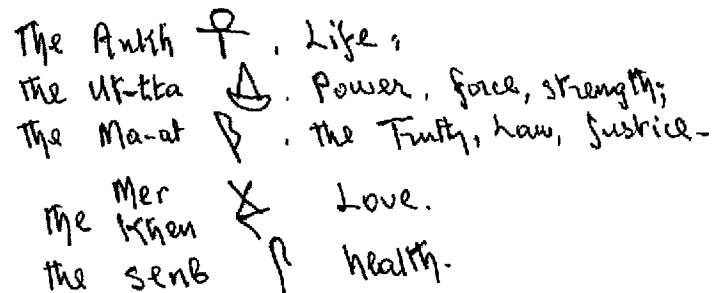 The Ankh ☥. Life;
the Ut-tta. Power, force, strength;
The Ma-at. the Truth, Law, Justice-
The Mer Khen Love.
the senb health.